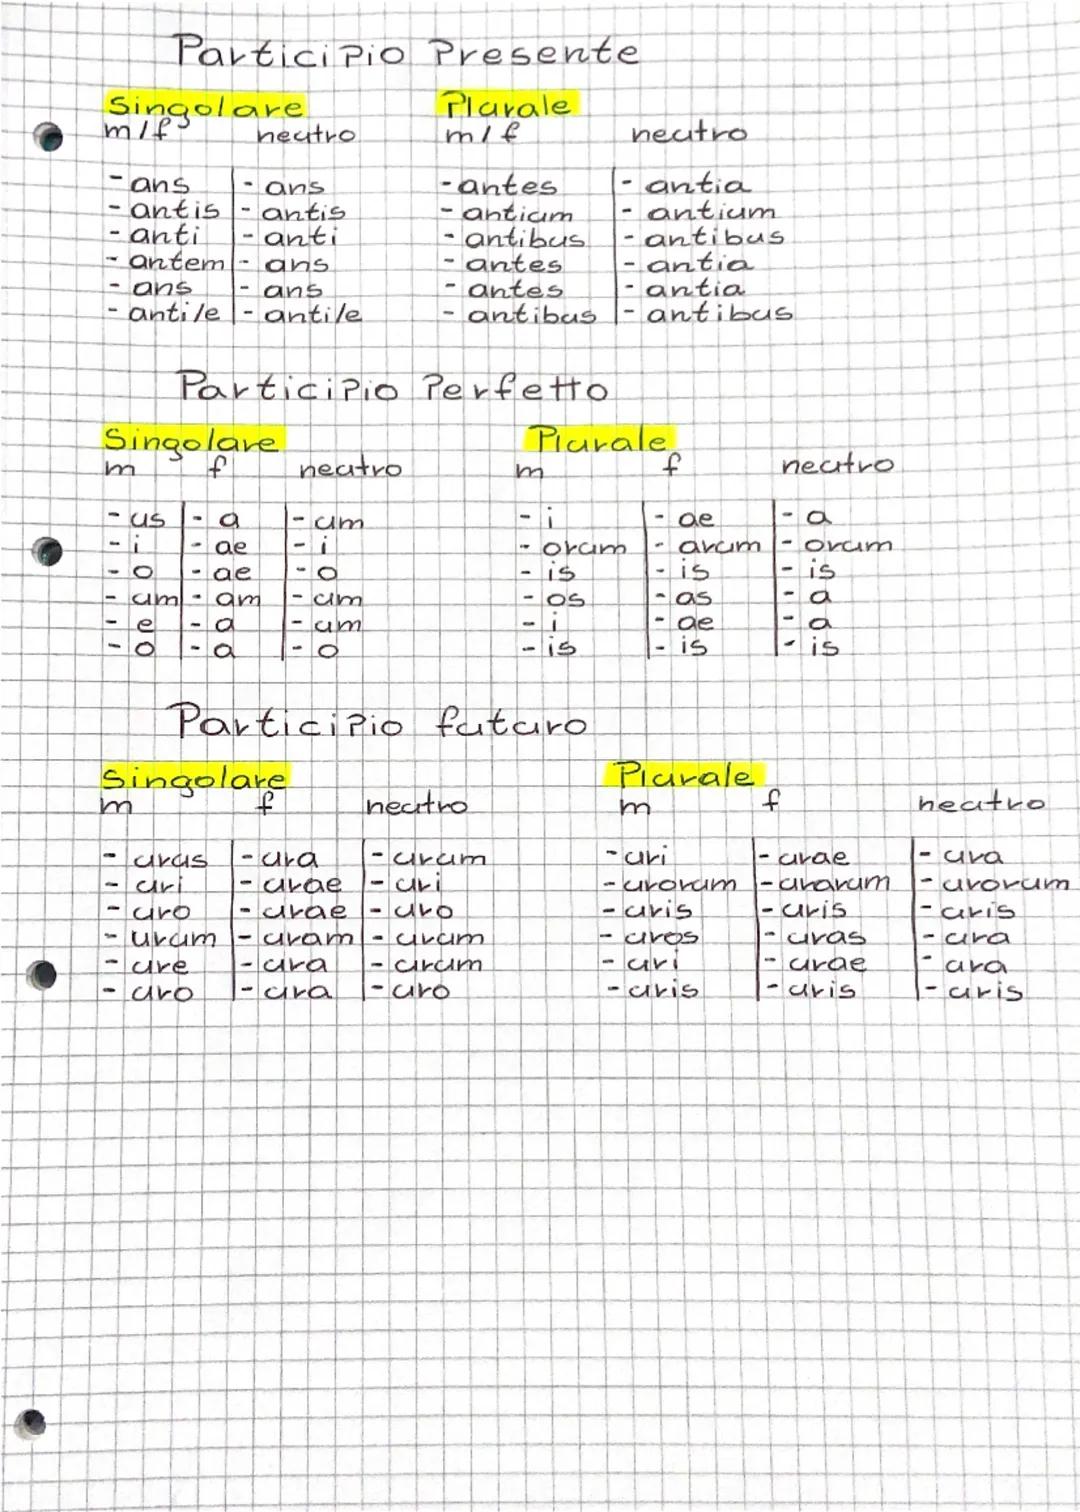 Participio Presente
Singolare Plurale
m/f neutro m/f neutro
-ans -ans -antes -antia
-antis -antis -antium -antium
-anti -anti -antibus -antibus
-antem -ans -antes -antia
-ans -ans -antes -antia
-anti/e -anti/e -antibus -antibus
Participio Perfetto
Singolare Plurale
m f neutro m f neutro
-us -a -um -i -ae -a
-i -ae -i -orum -arum -orum
-o -ae -o -is -is -is
-um -am -um -os -as -a
-e -a -um -i -ae -a
-o -a -o -is -is -is
Participio futuro
Singolare Plurale
m f neutro m f neutro
-urus -ura -urum -uri -urae -ura
-uri -urae -uri -urorum -urarum -urorum
-uro -urae -uro -uris -uris -uris
-urum -uram -urum -uros -uras -ura
-ure -ura -urum -uri -urae -ura
-uro -ura -uro -uris -uris -uris